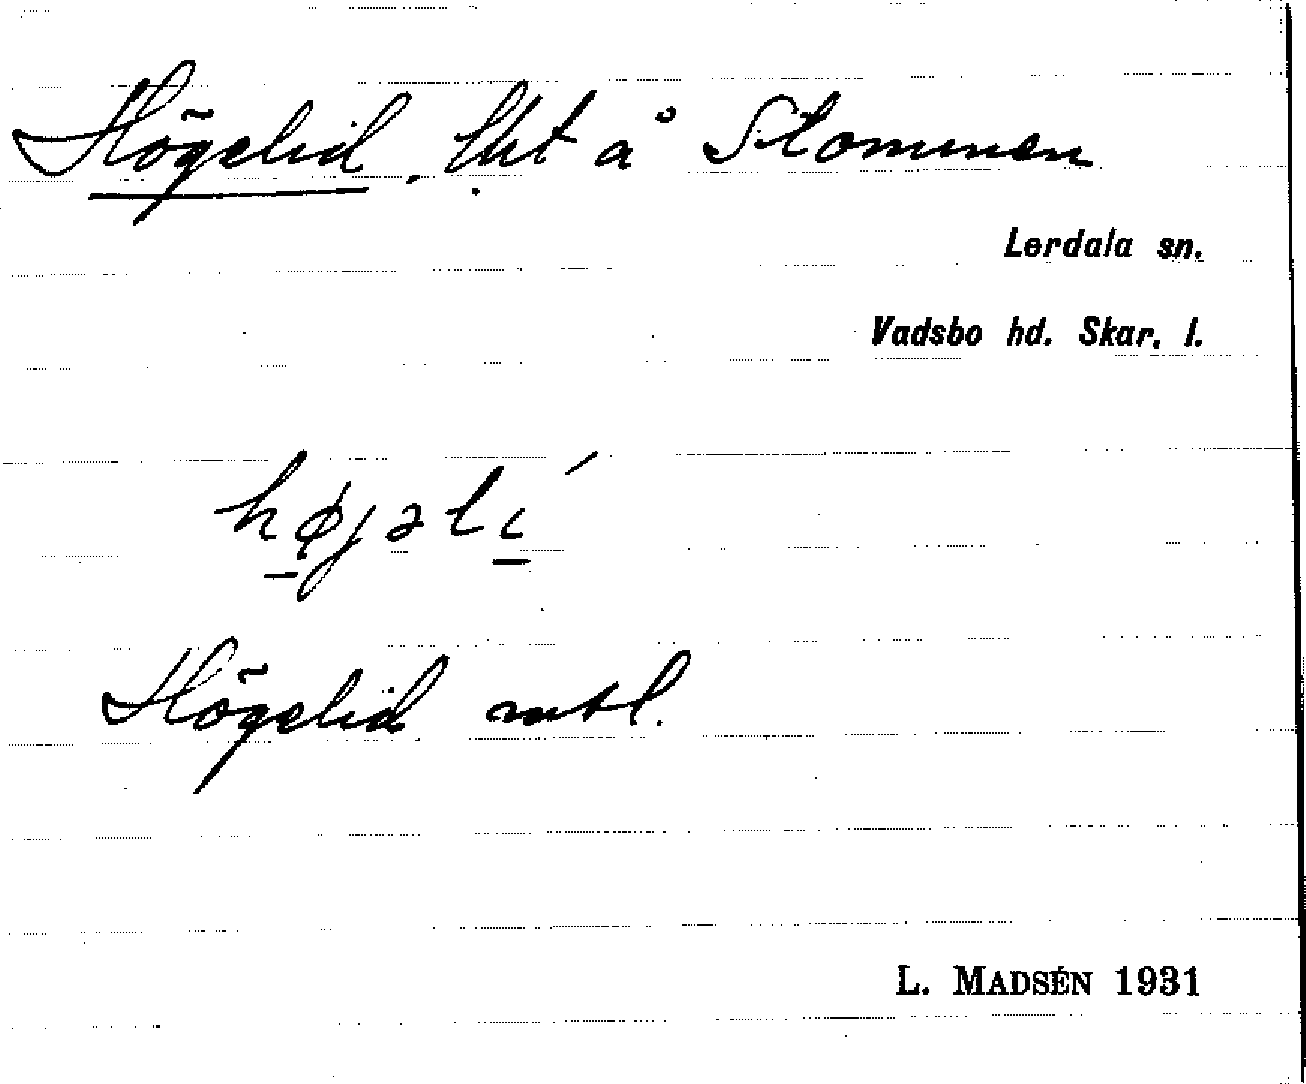 Högelid, lht å Stommen
Lerdala sn.
Vadsbo hd. Skar. l.
hø̱jəlı̱´
Högelid mtl.
L. MADSÉN 1931